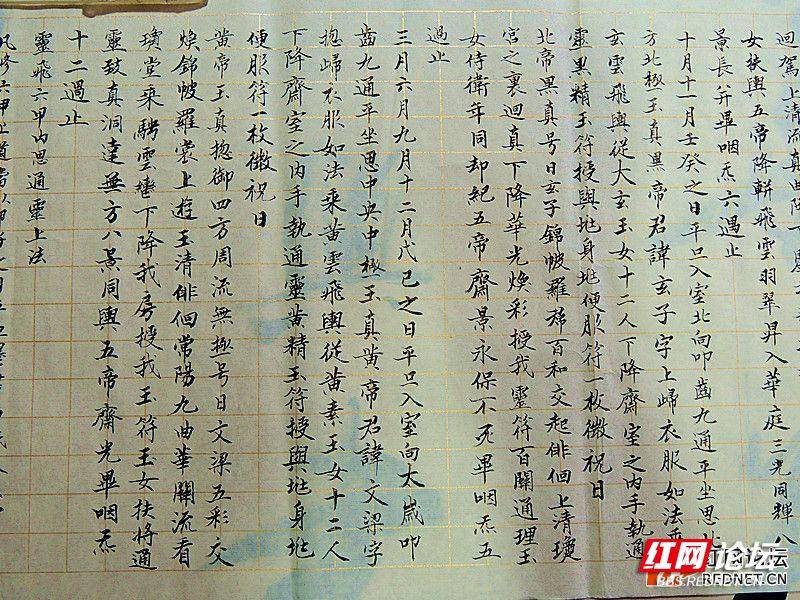 迴駕上清流真曲降下
女扶輿五帝降軿飛雲羽翠昇入華庭三光同輝八
景長并畢咽炁六過止
十月十一月壬癸之日平旦入室北向叩齒九通平坐思北
方北極玉真黑帝君諱玄子字上歸衣服如法乘
玄雲飛輿從太玄玉女十二人下降齋室之內手執通
靈黑精玉符授與兆身兆便服符一枚微祝曰
北帝黑真号曰玄子錦帔羅帬百和交起俳佪上清瓊
宮之裏迴真下降華光煥彩授我靈符百關通理玉
女侍衛年同劫紀五帝齋景永保不死畢咽炁五
過止
三月六月九月十二月戊己之日平旦入室向太歲叩
齒九通平坐思中央中極玉真黃帝君諱文梁字
惚歸衣服如法乘黃雲飛輿從黃素玉女十二人
下降齋室之內手執通靈黃精玉符授與兆身兆
便服符一枚微祝曰
黃帝玉真惚御四方周流無極号曰文梁五彩交
煥錦帔羅裳上遊玉清俳佪常陽九曲華關流看
瓊堂乘騁雲轡下降我房授我玉符玉女扶將通
靈致真洞達無方八景同輿五帝齋光畢咽炁
十二過止
靈飛六甲內思通靈上法
凡修六甲上道當以甲子之日
红网论坛
BBS.REDNET.CN